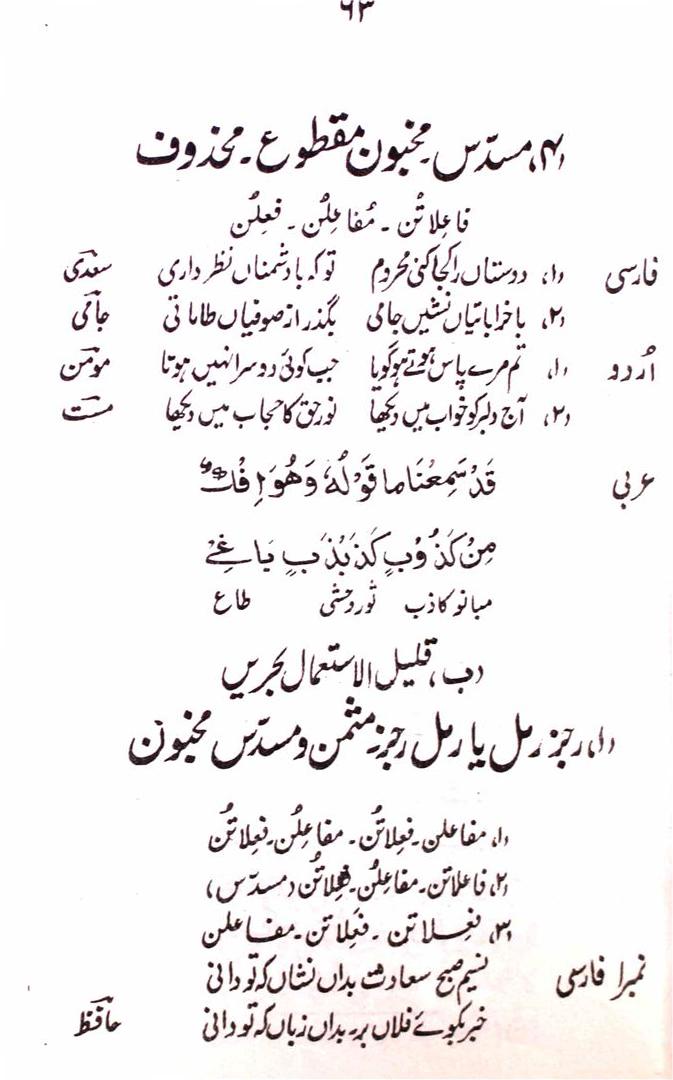 ۶۳
(۴) مسدّس۔ مخبون مقطوع۔ محذوف
فاعِلاتُن ۔ مُفاعِلُن ۔ فعِلُن
فارسی (۱) دوستاں را کجا کنی محروم تو کہ با دشمناں نظر داری سعدی
(۲) با خراباتیاں نشیں جامی بگذر از صوفیاں طاماتی جامی
اُردو (۱) تم مرے پاس ہوتے ہو گویا جب کوئی دوسرا نہیں ہوتا مومن
(۲) آج دلبر کو خواب میں دیکھا نورِ حق کا حجاب میں دیکھا مست
عربی قَدْ سَمِعْنَا ما قَوْلُهٗ وَهُوَ اِفْكٌ
مِنْ كَذُوْبٍ كَذَبْذَبٍ بَاغٍ
کاذب ثور وحشی طاع
(ب) قلیل الاستعمال بحریں
(۱) رجز رمل یا رمل رجز۔ مثمن و مسدّس مخبون
(۱) مفاعلن۔ فعِلاتُن۔ مفاعِلُن۔ فعِلاتُن
(۲) فاعلاتن۔ مفاعِلُن۔ فعِلاتُن (مسدّس)
(۳) فعِلاتن ۔ فعِلاتن ۔ مفاعلن
نمبر۱ فارسی نسیم صبح سعادت بداں نشاں کہ تو دانی
خبر بکوئے فلاں بر۔ بداں زباں کہ تو دانی حافظ